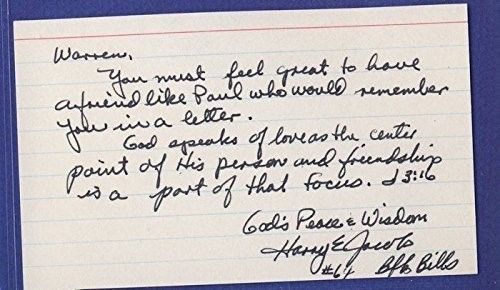 Warren,
You must feel great to have
a friend like Paul who would remember
you in a letter.
God speaks of love as the center
point of His person and friendship
is a part of that focus. J 3:16
God's Peace & Wisdom
Harry E Jacobs
#64 Bflo Bills